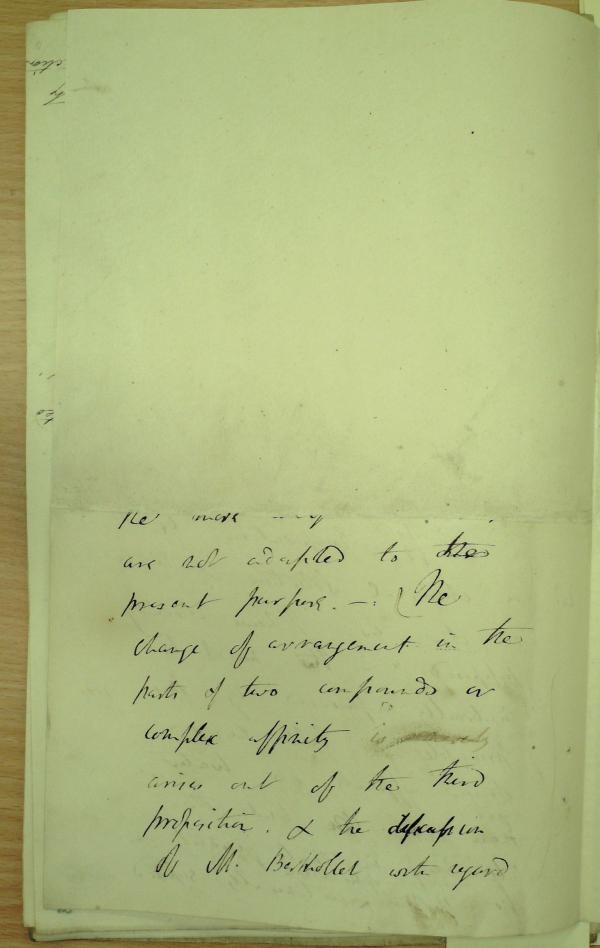 the more
are not adapted to the
present purpose. —. (The
change of arrangement in the
parts of two compounds or
complex affinity is
arises out of the third
proposition. & the discussion
of M. Berthollet with regard